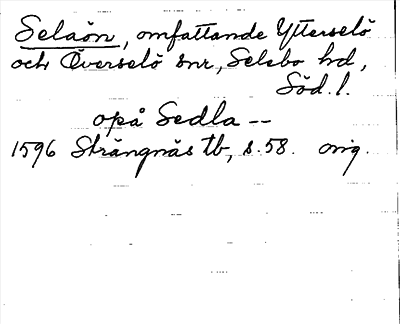 Selaön, omfattande Ytterselö
och Överselö snr, Selebo hd,
Söd. l.
opå Sedla --
1596 Strängnäs tb, s. 58. orig.